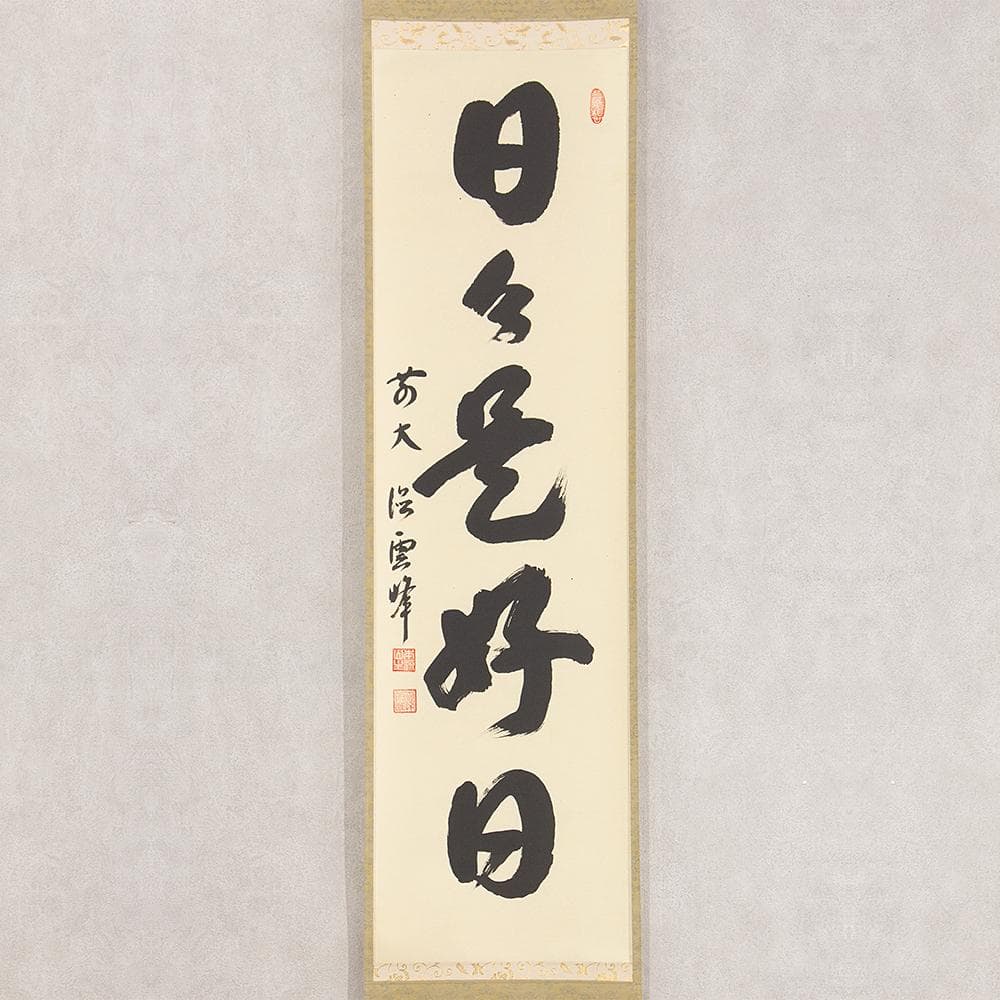 日々是好日
前大徳雲峰